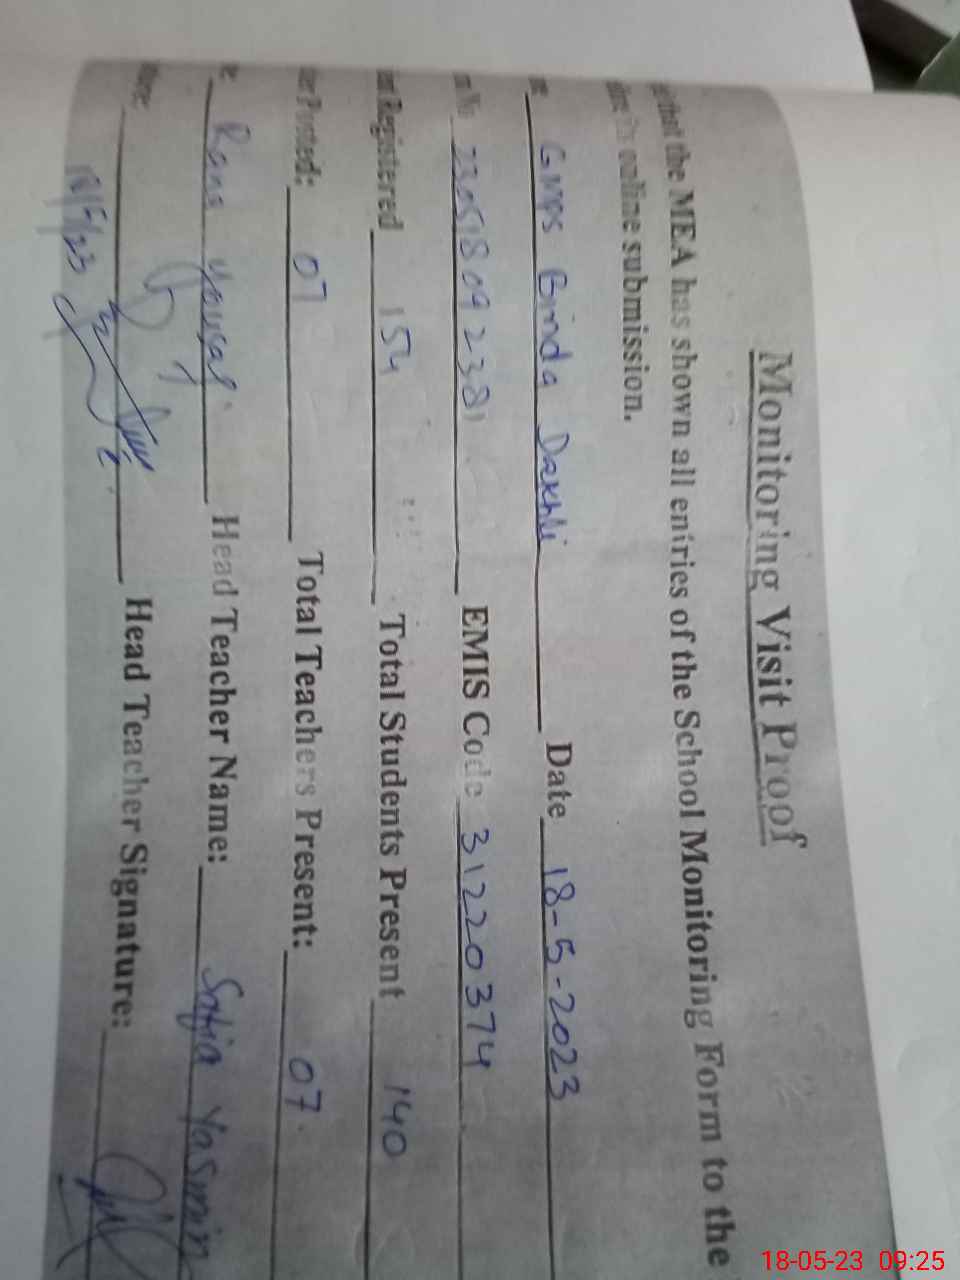 Monitoring Visit Proof
that the MEA has shown all entries of the School Monitoring Form to the
online submission.
GMPS Brinda Dakhli Date 18-5-2023
230518092381 EMIS Code 31220374
Registered 154 Total Students Present 140
Posted: 07 Total Teachers Present: 07
Rana Yousaf Head Teacher Name: Safia Yasmin
Head Teacher Signature:
18/5/23
18-05-23 09:25